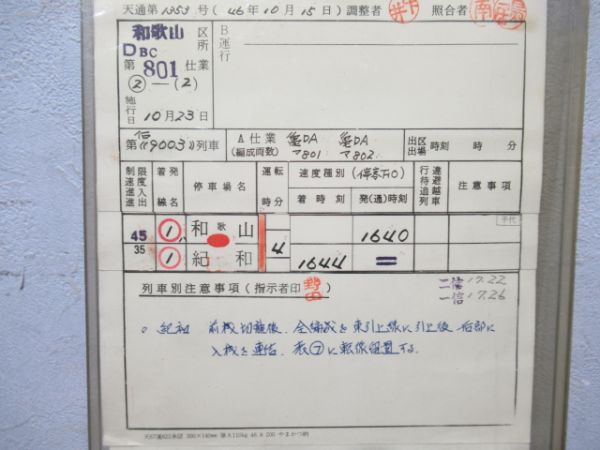 天通第1353号(46年10月15日)調整者 照合者
和歌山 区所
B運行
DBC
第801仕業
②—(2)
施行日 10月23日
第 9003 列車 A仕業(編成両数) 亀DA 亀DA 出区出場 時刻 時 分
マ801 マ802
制限速度進入進出 着発線名 停車場名 運転時分 速度種別(停気F10) 行違待避追越列車 注意事項
着時刻 発(通)時刻
45 ① 和歌山 1640
4
35 ① 紀和 1644 =
列車別注意事項(指示者印)野田
二信 17.22
一信 17.26
。紀和 前機切離後、全編成を東引上線に引上後 后部に
入機を連結、裏⑦に転線留置する。